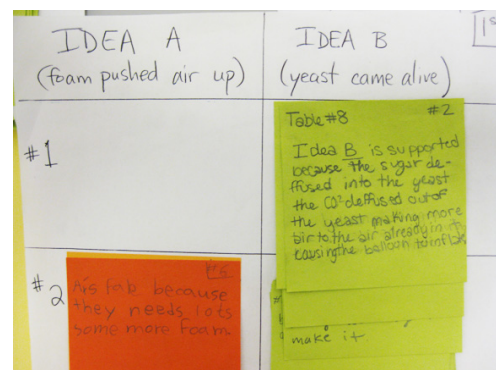 IDEA A
(foam pushed air up)
IDEA B
(yeast came alive)
1s
#1
Table #8 #2
Idea B is supported
because the sugar de-
ffused into the yeast
the CO² deffused out of
the yeast making more
air to the air already in it
causing the balloon to inflate
#2
because
they needs lots
some more foam
make it